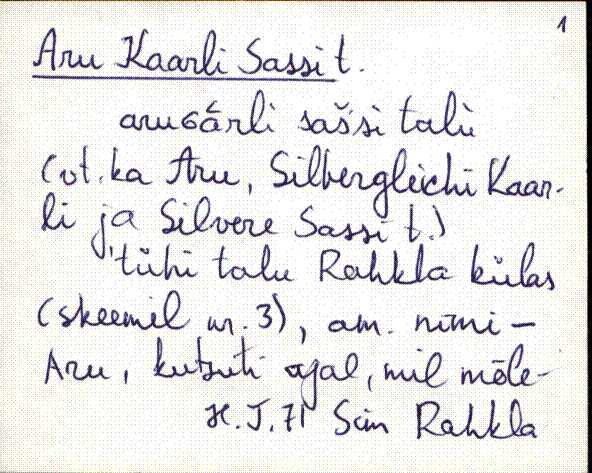 1
Aru Kaarli Sassi t.
aruGárli sašsi talù
(vt. ka Aru, Silbergleichi Kaar-
li ja Silvere Sassi t.)
'tühi talu Rahkla külas
(skeemil nr. 3), am. nimi –
Aru, kutsuti ajal, mil mõle-
H. J. 71 Sim Rahkla